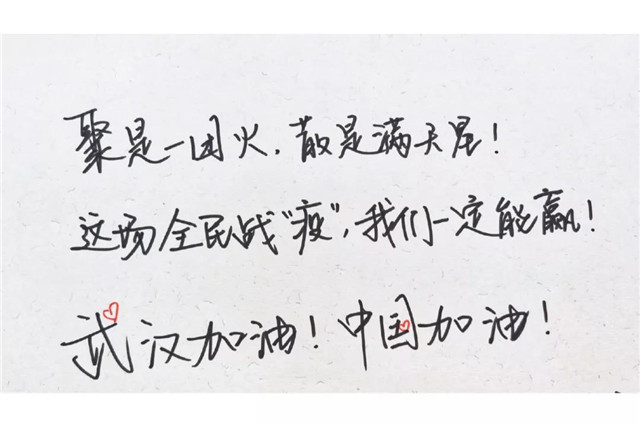 聚是一团火，散是满天星！
这场全民战“疫”，我们一定能赢！
武汉加油！中国加油！